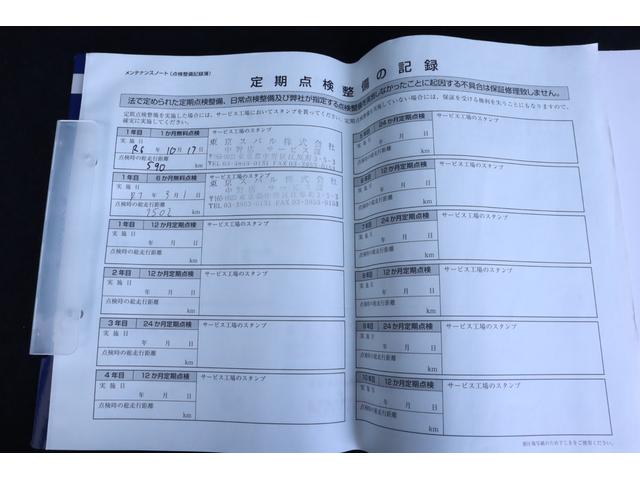 メンテナンスノート（点検整備記録簿）
定期点検整備の記録
法で定められた定期点検整備、日常点検整備及び弊社が指定する点検整備を実施しなかったことに起因する不具合は保証修理致しません。
定期点検整備を実施した場合には、サービス工場においてスタンプを
確実に実施してください。
1年目 1か月無料点検 サービス工場のスタンプ
実施日
R6年10月17日
点検時の総走行距離
590 km
東京スバル株式会社
中野店 サービス課
1年目 6か月無料点検 サービス工場のスタンプ
実施日
R7年3月1日
点検時の総走行距離
7502 km
東京スバル株式会社
中野店 サービス課
1年目 12か月定期点検 サービス工場のスタンプ
実施日
年 月 日
点検時の総走行距離
km
2年目 12か月定期点検 サービス工場のスタンプ
実施日
年 月 日
点検時の総走行距離
km
3年目 24か月定期点検 サービス工場のスタンプ
実施日
年 月 日
点検時の総走行距離
km
4年目 12か月定期点検 サービス工場のスタンプ
実施日
年 月 日
点検時の総走行距離
km
24か月定期点検 サービス工場のスタンプ
年 月 日
点検時の総走行距離
km
12か月定期点検 サービス工場のスタンプ
年 月 日
点検時の総走行距離
km
7年目 24か月定期点検 サービス工場のスタンプ
年 月 日
点検時の総走行距離
km
8年目 12か月定期点検 サービス工場のスタンプ
年 月 日
点検時の総走行距離
km
24か月定期点検 サービス工場のスタンプ
年 月 日
点検時の総走行距離
km
10年目 12か月定期点検 サービス工場のスタンプ
年 月 日
点検時の総走行距離
km